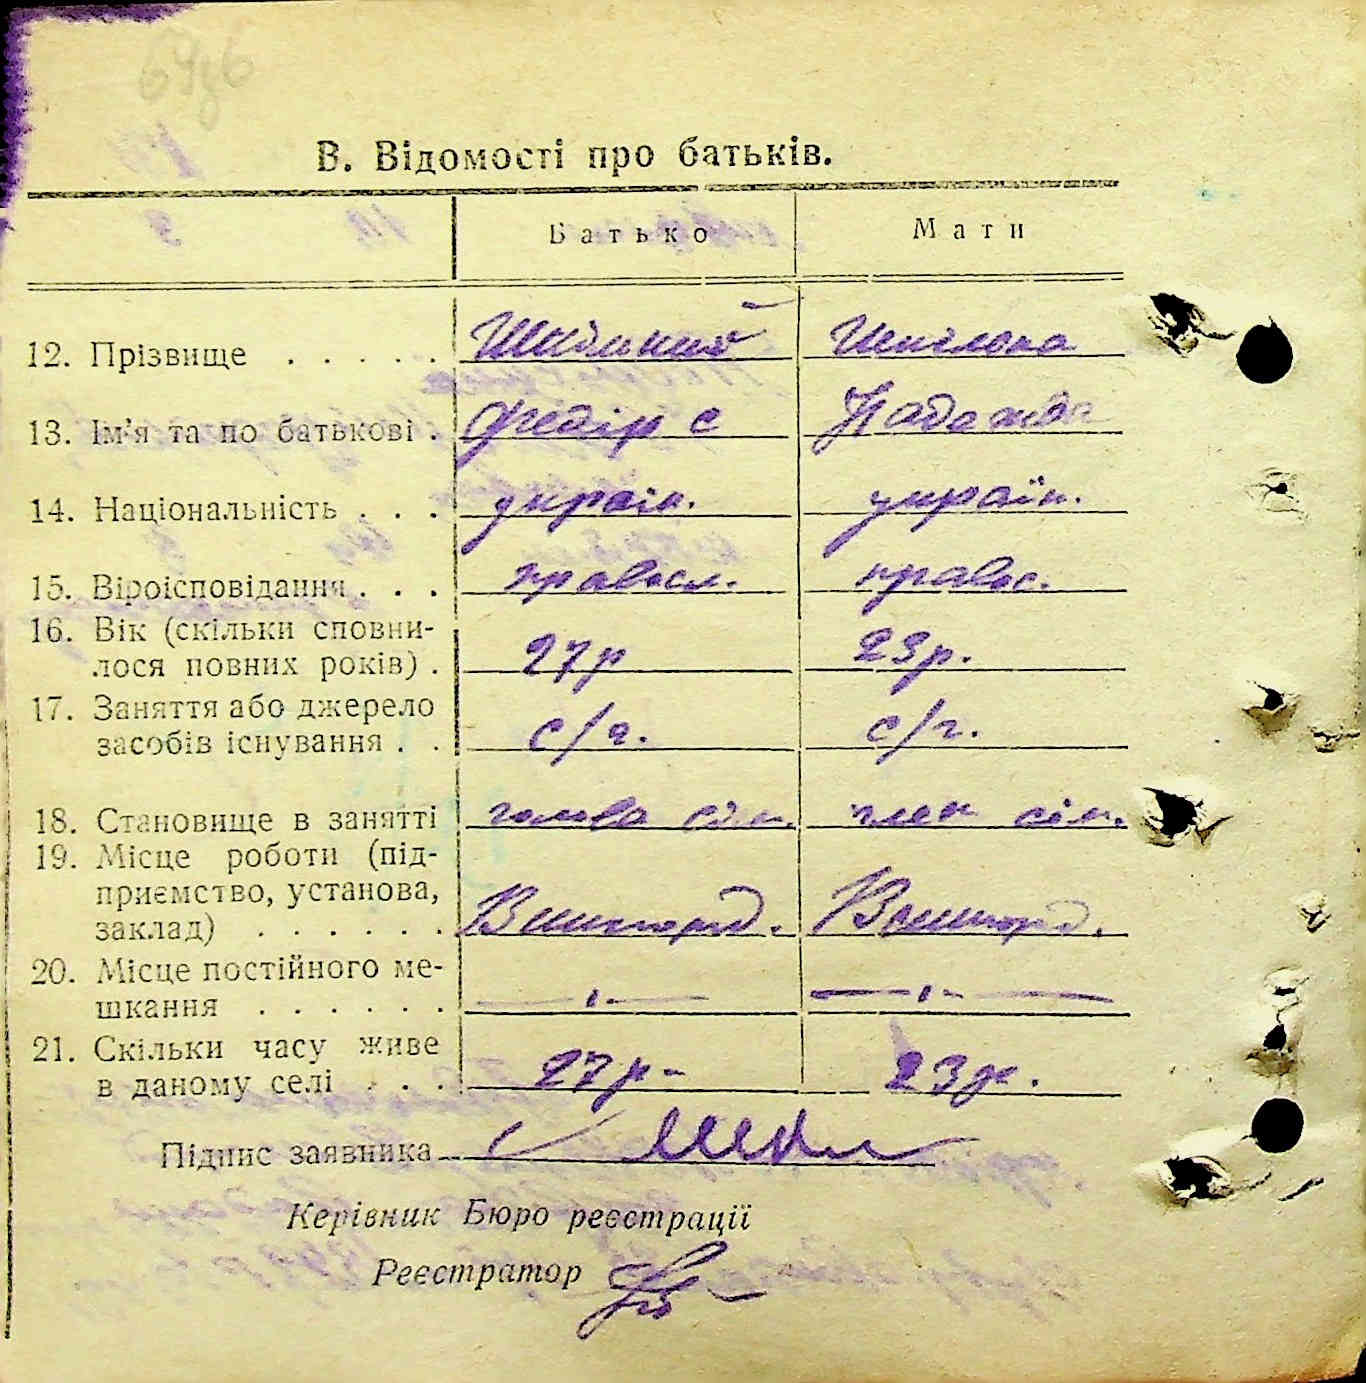 В. Відомості про батьків.
Батько Мати
12. Прізвище . . . . .
13. Ім'я та по батькові . Федір С Надежда
14. Національність . . . україн. україн.
15. Віроісповідання . . . правосл. правос.
16. Вік (скільки сповни-
лося повних років) . 27р 23р.
17. Заняття або джерело
засобів існування . . с/г. с/г.
18. Становище в занятті голова сім. член сім.
19. Місце роботи (під-
приємство, установа,
заклад) . . . . . .
20. Місце постійного ме-
шкання . . . . . . —〃— —〃—
21. Скільки часу живе
в даному селі . . . 27р- 23р.
Підпис заявника
Керівник Бюро реєстрації
Реєстратор